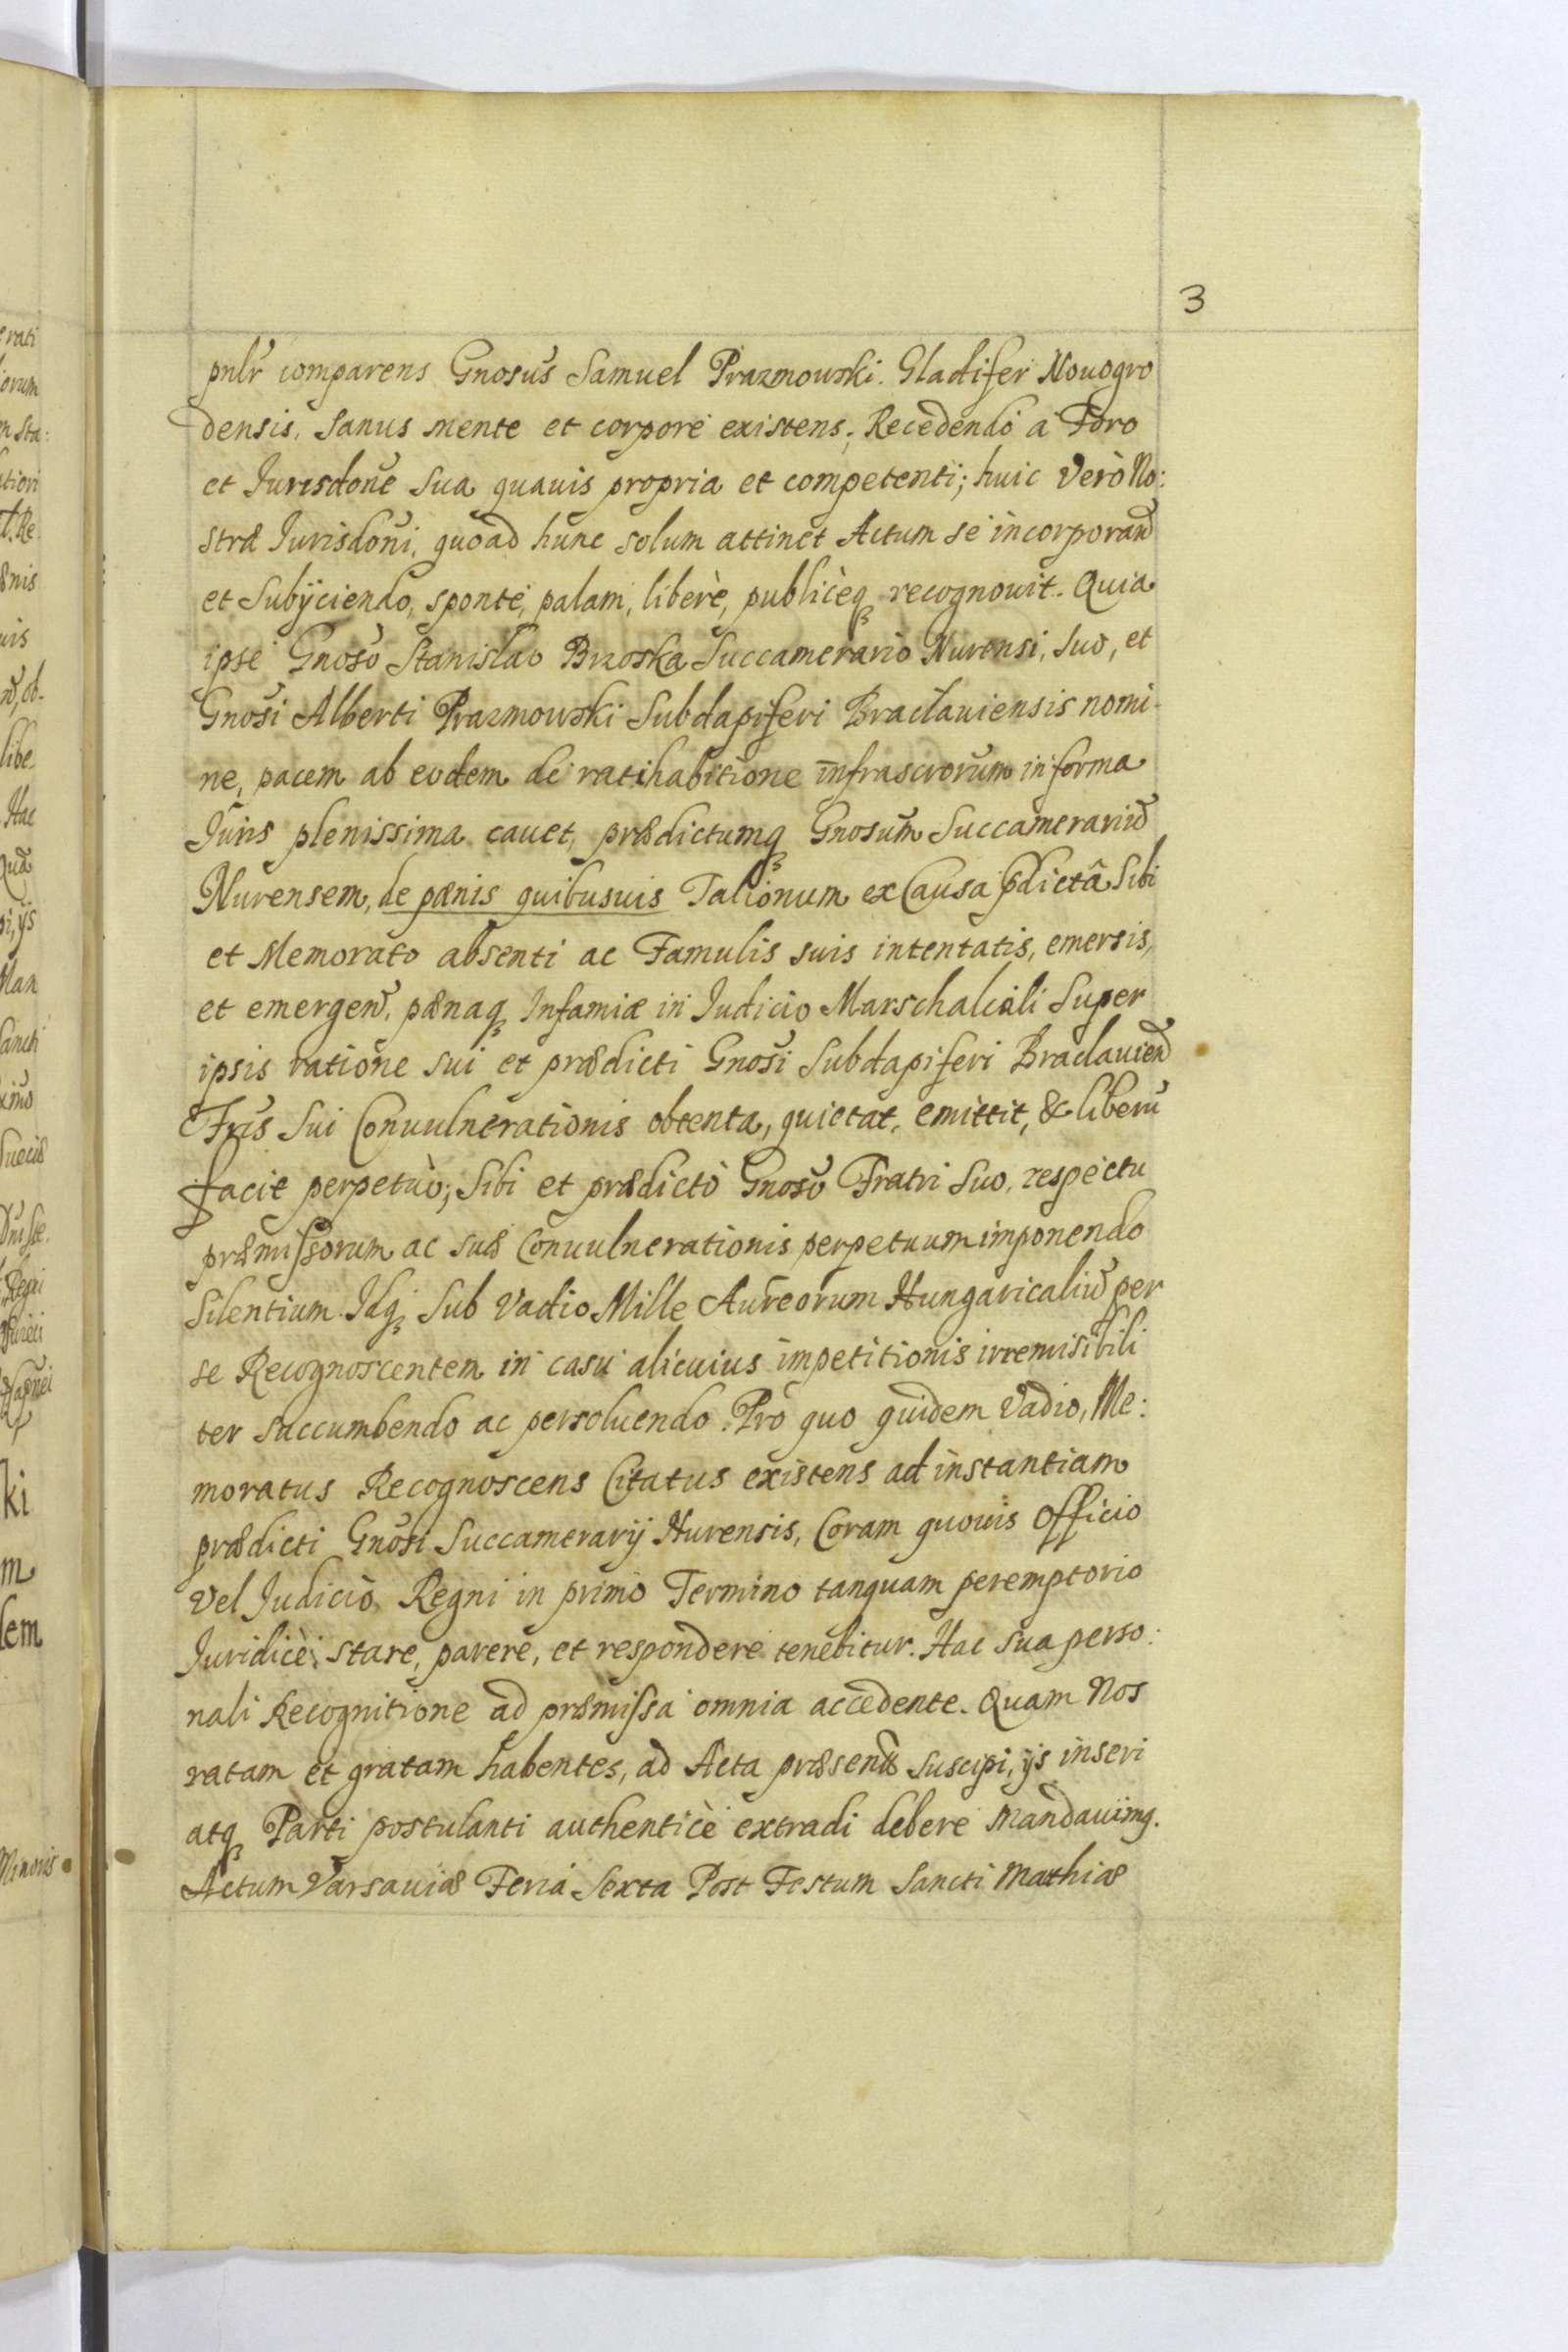 3
pnlr comparens Gnosus Samuel Prazmowski. Gladifer Nouogro
densis, Sanus mente et corpore existens; Recedendo a Foro
et Jurisdone sua quavis propria et competenti; huic Verò No:
stræ Jurisdoni, quoad hunc solum attinet Actum se incorporand
et Subÿciendo, sponte, palam, liberè, publicèq recognouit. Quia
ipse Gnoso Stanislao Brzoska Succamerario Nurensi, Suo, et
Gnosi Alberti Prazmowski Subdapiferi Braclauiensis nomi-
ne, pacem ab eodem de ratihabitione infrascrorum in forma
Juris plenissima cauet, prædictumq Gnosum Succamerariu
Nurensem, de pænis quibusuis Talionum ex Causa pdictâ Sibi
et Memorato absenti ac Famulis suis intentatis, emersis,
et emergen, pænaq Infamiæ in Judicio Marschalcali Super
ipsis ratione sui et prædicti Gnosi Subdapiferi Braclauien
Fris Sui Conuulnerationis obtenta, quietat, emittit, & liberu
facit perpetuò; Sibi et prædicto Gnoso Fratri Suo, respectu
præmissorum ac suæ Conuulnerationis perpetuum imponendo
Silentium. Idq Sub Vadio Mille Aureorum Hungaricaliu per
se Recognoscentem in casu alicuius impetitionis irremisibili
ter succumbendo ac persoluendo. Pro quo quidem Vadio, Me:
moratus Recognoscens Citatus existens ad instantiam
prædicti Gnosi Succamerarÿ Nurensis, Coram quouis Officio
Vel Judicio Regni in primo Termino tanquam peremptorio
Juridicè stare, parere, et respondere tenebitur. Hac sua perso:
nali Recognitione ad præmissa omnia accedente. Quam Nos
ratam et gratam habentes, ad Acta præsentia suscipi, ÿs inseri
atq Parti postulanti authenticè extradi debere mandauimq.
Actum Varsauiæ Feria Sexta Post Festum Sancti Mathiæ